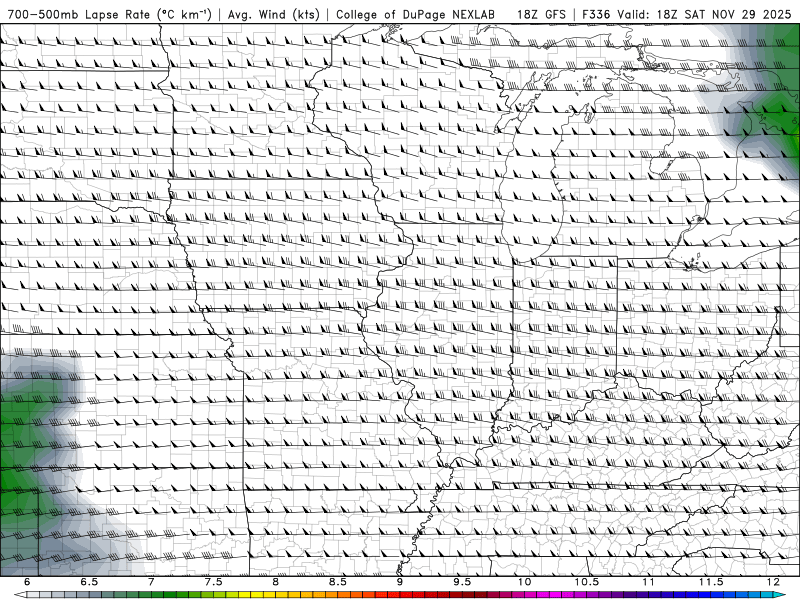 700-500mb Lapse Rate (°C km⁻¹) | Avg. Wind (kts) | College of DuPage NEXLAB 18Z GFS | F336 Valid: 18Z SAT NOV 29 2025
6 6.5 7 7.5 8 8.5 9 9.5 10 10.5 11 11.5 12